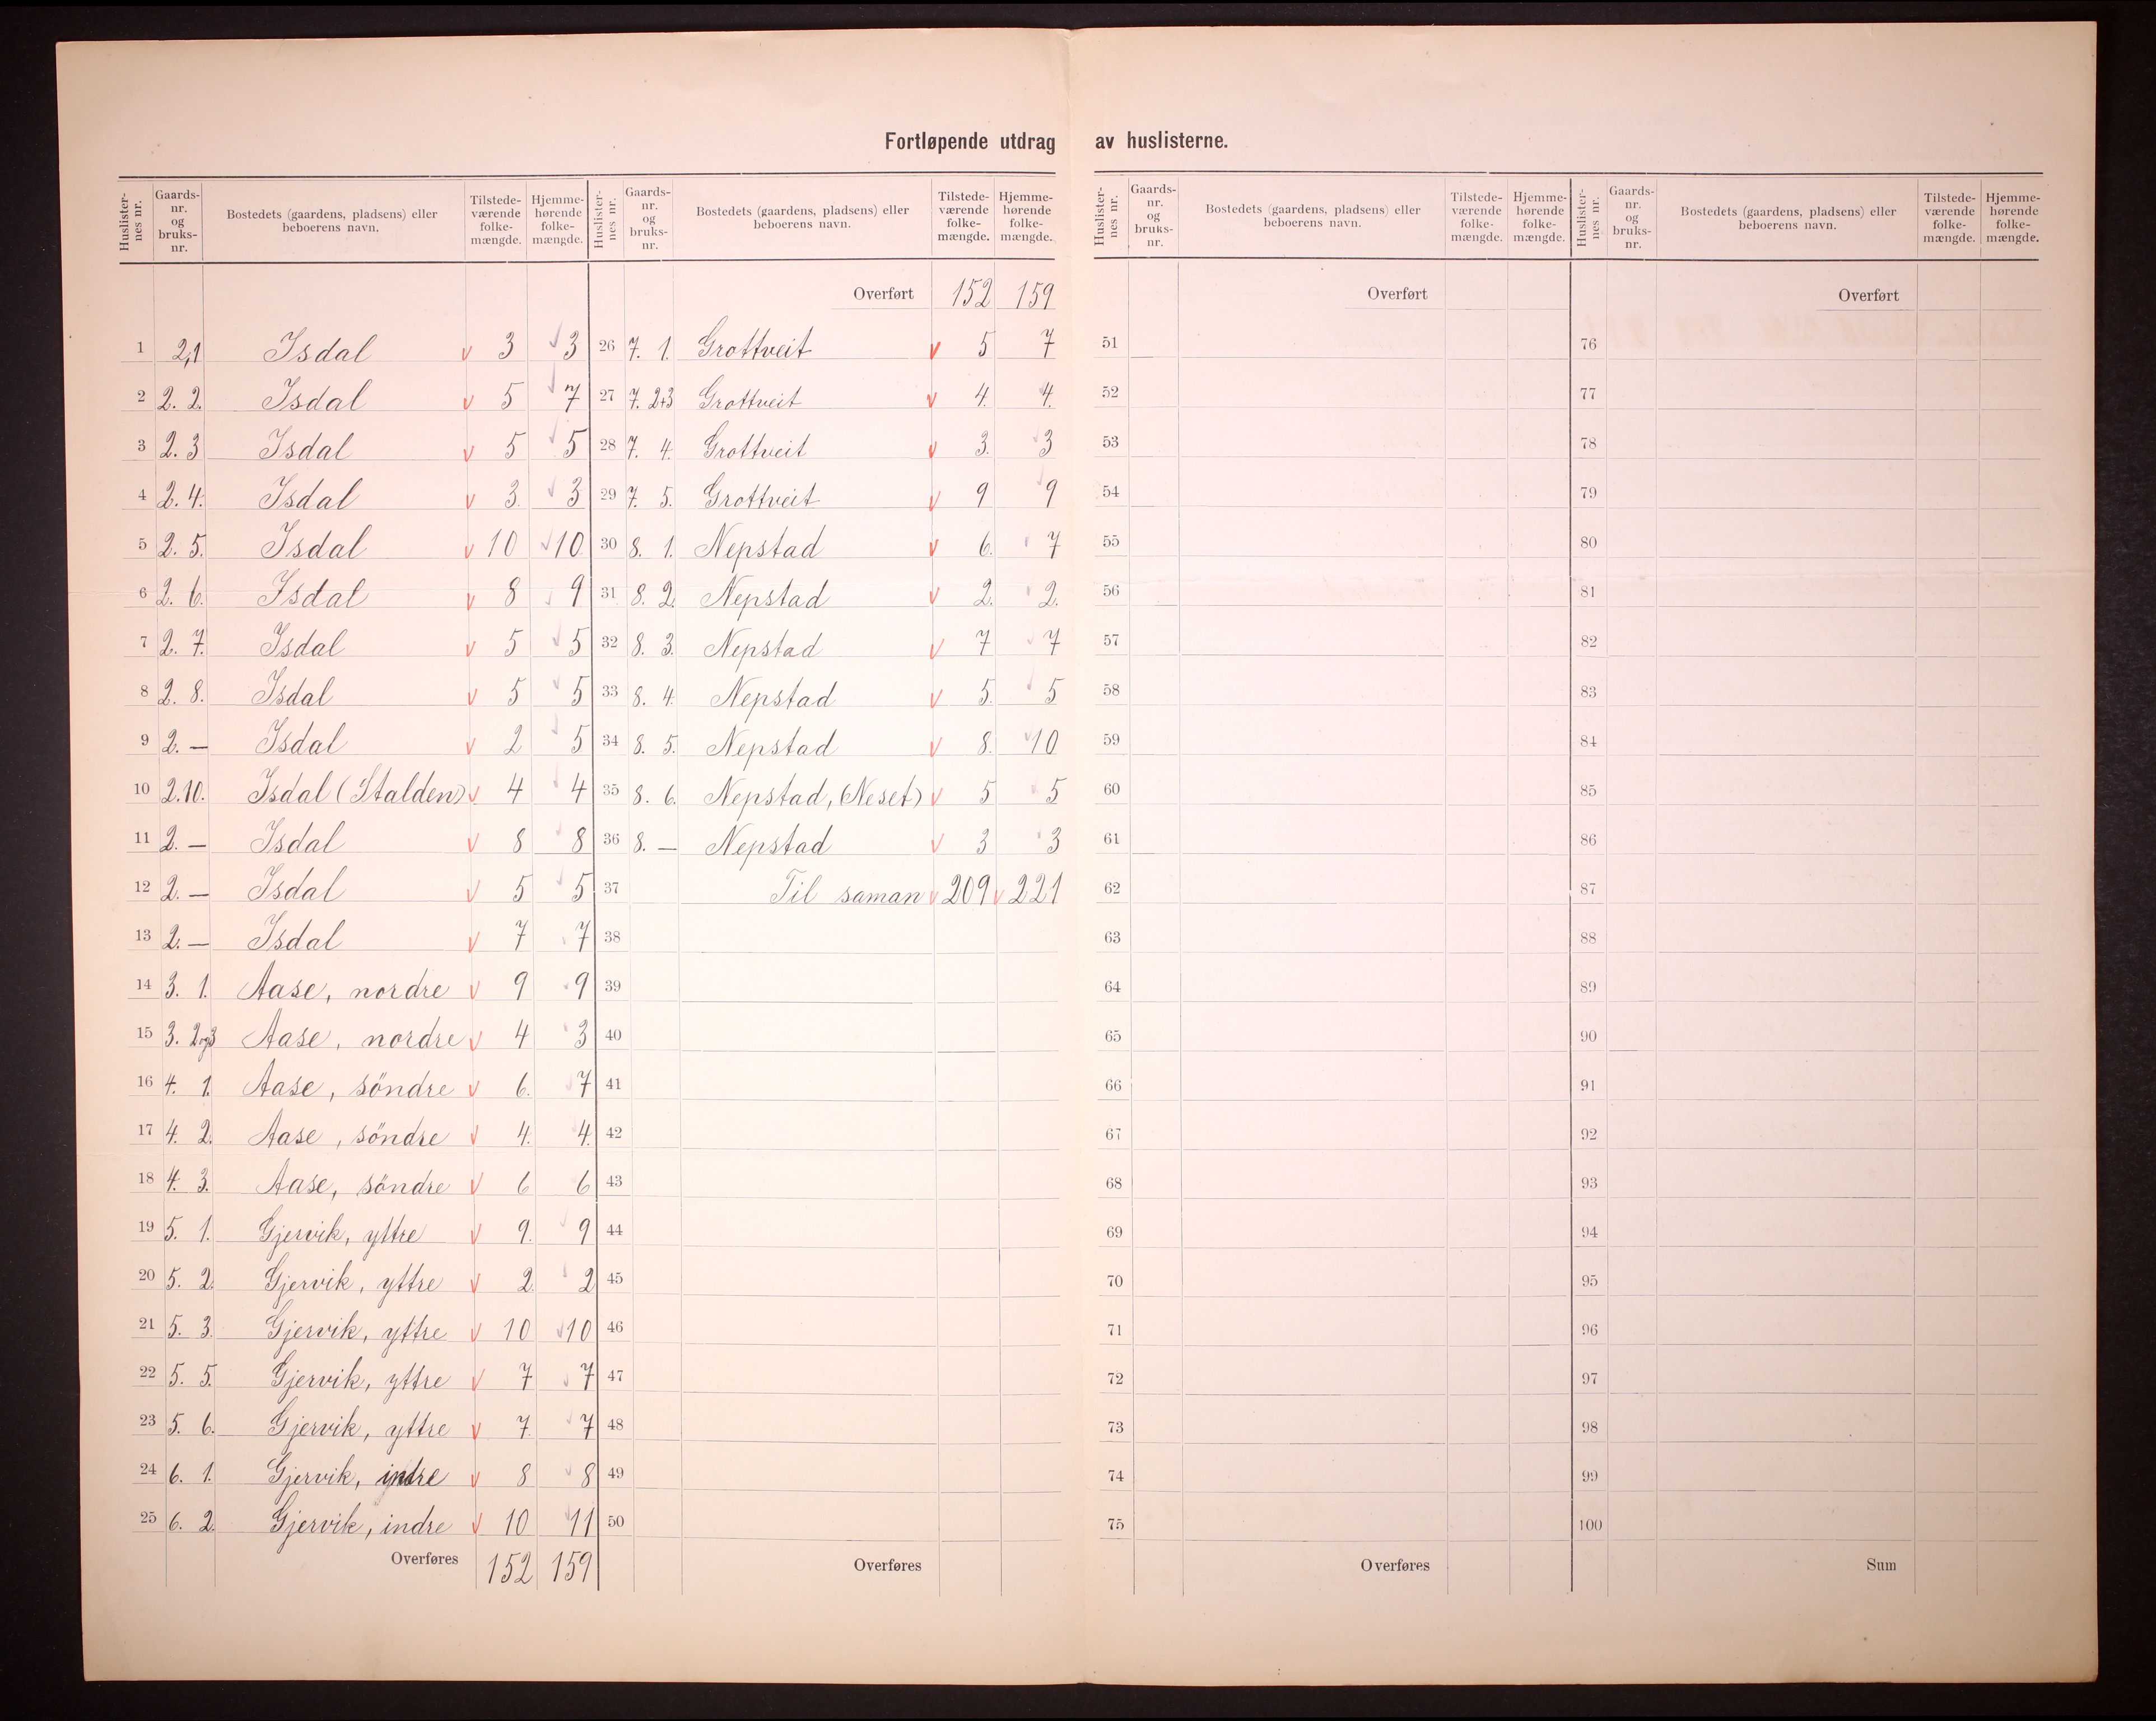 Fortløpende utdrag av huslisterne.
Huslisternes nr. Gaards-nr. og bruks-nr. Bostedets (gaardens, pladsens) eller beboerens navn. Tilstedeværende folkemængde. Hjemmehørende folkemængde.
1 2,1 Isdal v 3 3
2 2. 2. Isdal v 5 7
3 2. 3 Isdal v 5 5
4 2. 4. Isdal v 3. 3
5 2. 5. Isdal v 10 10
6 2. 6. Isdal v 8 9
7 2. 7. Isdal v 5 5
8 2. 8. Isdal v 5 5
9 2. — Isdal v 2 5
10 2.10. Isdal (Stalden) v 4 4
11 2. — Isdal v 8 8
12 2. — Isdal v 5 5
13 2. — Isdal v 7 7
14 3. 1. Aase, nordre v 9 9
15 3. 2og3 Aase, nordre v 4 3
16 4. 1. Aase, söndre v 6. 7
17 4. 2. Aase, söndre v 4. 4.
18 4. 3. Aase, söndre v 6 6
19 5. 1. Gjervik, yttre v 9. 9
20 5. 2. Gjervik, yttre v 2. 2
21 5. 3. Gjervik, yttre v 10 10
22 5. 5. Gjervik, yttre v 7 7
23 5. 6. Gjervik, yttre v 7 7
24 6. 1. Gjervik, indre v 8 8
25 6. 2. Gjervik, indre v 10 11
Overføres 152 159
Huslisternes nr. Gaards-nr. og bruks-nr. Bostedets (gaardens, pladsens) eller beboerens navn. Tilstedeværende folkemængde. Hjemmehørende folkemængde.
Overført 152 159
26 7. 1. Grottveit v 5 7
27 7. 2+3 Grottveit v 4. 4.
28 7. 4. Grottveit v 3. 3
29 7. 5. Grottveit v 9 9
30 8. 1. Nepstad v 6. 7
31 8. 2. Nepstad v 2. 2.
32 8. 3. Nepstad v 7 7
33 8. 4. Nepstad v 5. 5
34 8. 5. Nepstad v 8. 10
35 8. 6. Nepstad, (Neset) v 5 5
36 8. — Nepstad v 3 3
37 Til saman v 209 v 221
38
39
40
41
42
43
44
45
46
47
48
49
50
Overføres
Huslisternes nr. Gaards-nr. og bruks-nr. Bostedets (gaardens, pladsens) eller beboerens navn. Tilstedeværende folkemængde. Hjemmehørende folkemængde.
Overført
51
52
53
54
55
56
57
58
59
60
61
62
63
64
65
66
67
68
69
70
71
72
73
74
75
Overføres
Huslisternes nr. Gaards-nr. og bruks-nr. Bostedets (gaardens, pladsens) eller beboerens navn. Tilstedeværende folkemængde. Hjemmehørende folkemængde.
Overført
76
77
78
79
80
81
82
83
84
85
86
87
88
89
90
91
92
93
94
95
96
97
98
99
100
Sum